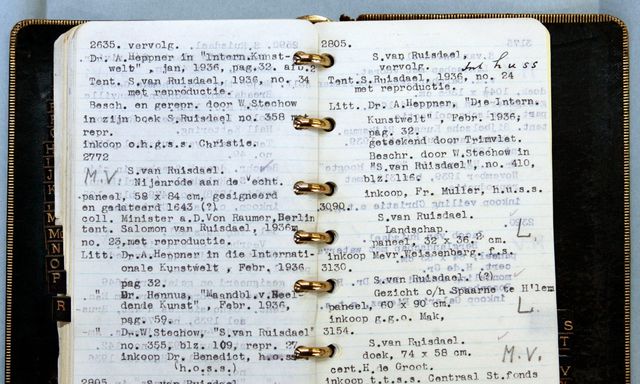 2635. vervolg.
Dr. A. Heppner in "Intern. Kunst-
welt", jan. 1936, pag. 32. afb. 2
Tent. S. van Ruisdael, 1936, no. 34
met reproductie.
Besch. en gerepr. door W. Stechow
in zijn boek S. Ruisdael no. 358 m
repr.
inkoop o.h.g.s.s. Christie.
2772
S. van Ruisdael.
M.V. Nijenrode aan de Vecht.
paneel, 58 x 84 cm, gesigneerd
en gedateerd 1643 (?)
coll. Minister a.D. Von Raumer, Berlin
tent. Salomon van Ruisdael, 1936
no. 23, met reproductie.
Litt. Dr. A. Heppner in die Internati-
onale Kunstwelt, Febr. 1936
pag. 32
" Dr. Hennus, "Maandbl. v. Beel
dende Kunst", Febr. 1936,
pag. 59.
" Dr. W. Stechow, "S. van Ruisdael"
no. 355, blz. 109, repr. 27
inkoop Dr. Benedict, h.o.s.s
(h.o.s.s.)
2805. S. van Ruisdael
2805.
S. van Ruisdael.
vervolg. huss
Tent. S. Ruisdael, 1936, no. 24
met reproductie.
Litt. Dr. A. Heppner, "Die Intern.
Kunstwelt", Febr. 1936,
pag. 32.
geteekend door Trimvlet.
Beschr. door W. Stechow in
"S. van Ruisdael", no. 410,
blz. 116.
inkoop, Fr. Muller, h.u.s.s.
3090.
S. van Ruisdael.
Landschap. L
paneel, 32 x 36.² cm.
inkoop Mevr. Keissenberg, f.s.
3130.
S. van Ruisdael. (?)
Gezicht o/h Spaarne te H'lem
paneel, 60 x 90 cm. L
inkoop g.g.o. Mak,
3154.
S. van Ruisdael.
doek, 74 x 58 cm. M.V.
cert. H. de Groot.
inkoop t.t.s.s. Centraal St. fonds